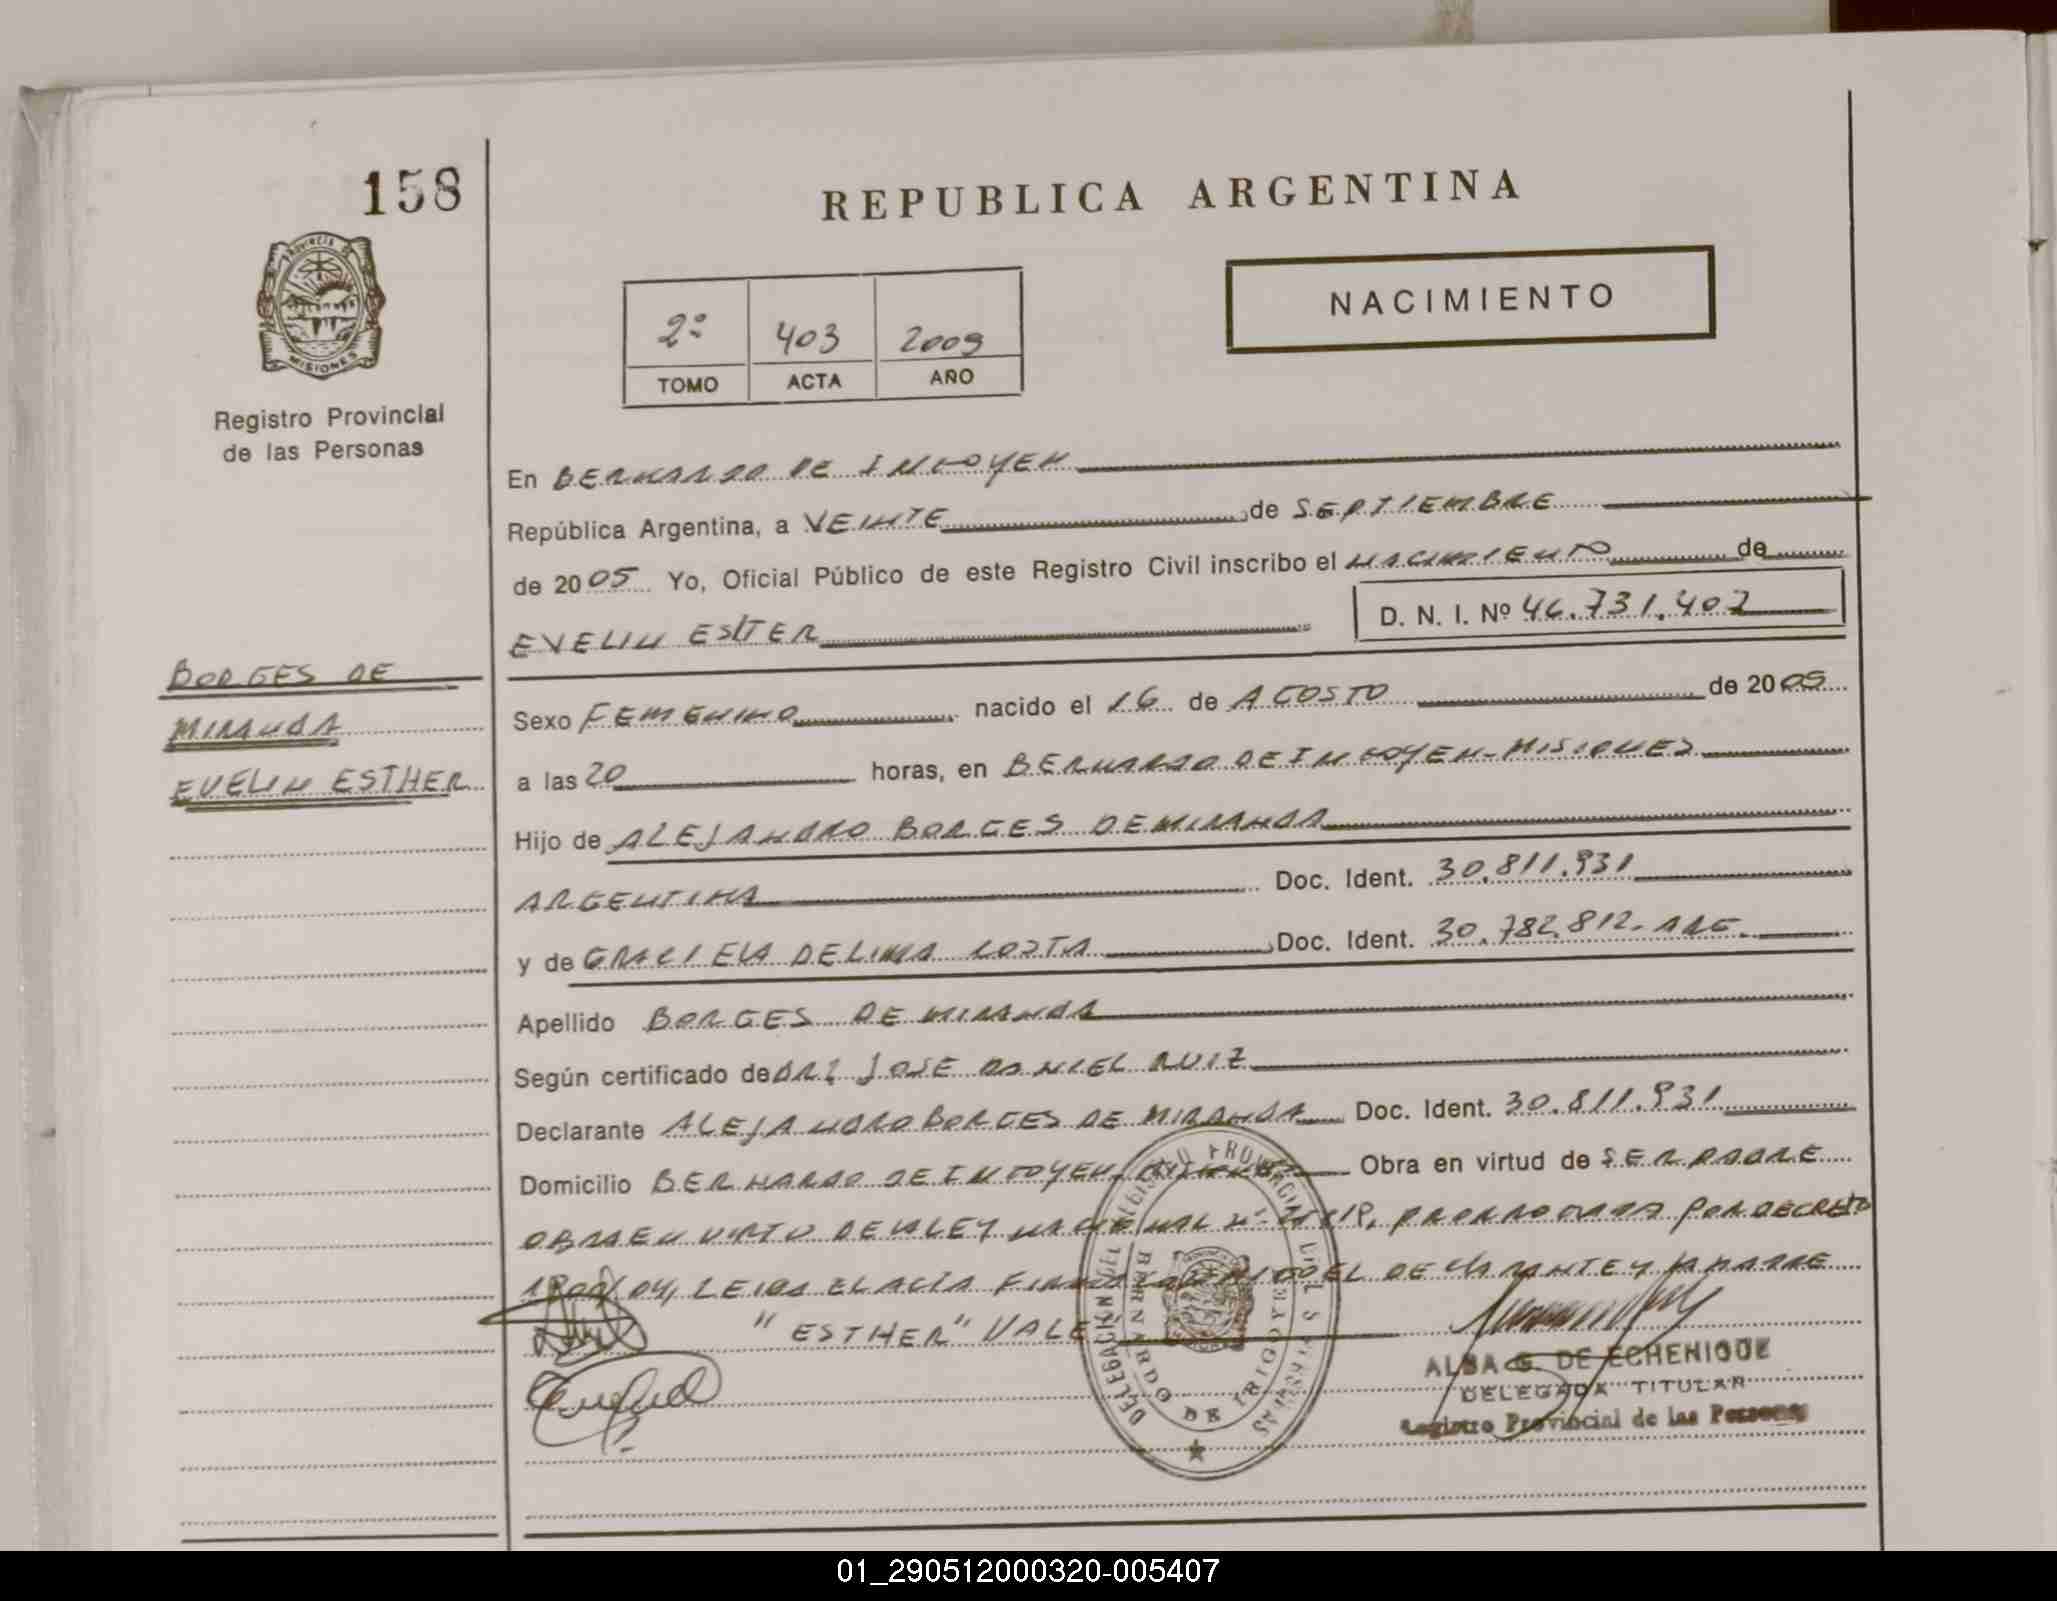 158
REPUBLICA ARGENTINA
PROVINCIA DE
MISIONES
Registro Provincial
de las Personas
NACIMIENTO
2º 403 2005
TOMO ACTA AÑO
En BERNARDO DE IRIGOYEN
República Argentina, a VEINTE de SEPTIEMBRE
de 2005 Yo, Oficial Público de este Registro Civil inscribo el NACIMIENTO de
EVELIN ESTER D. N. I. Nº 46.731.407
BORGES DE
MIRANDA
EVELIN ESTHER
Sexo FEMENINO nacido el 16 de AGOSTO de 2005
a las 20 horas, en BERNARDO DE IRIGOYEN-MISIONES
Hijo de ALEJANDRO BORGES DE MIRANDA
ARGENTINA Doc. Ident. 30.811.931
y de GRACIELA DE LIMA COSTA Doc. Ident. 30.782.812-ARG.
Apellido BORGES DE MIRANDA
Según certificado de DR: JOSE DANIEL RUIZ
Declarante ALEJANDRO BORGES DE MIRANDA Doc. Ident. 30.811.931
Domicilio BERNARDO DE IRIGOYEN, MISIONES Obra en virtud de SER PADRE
OBRA EN VIRTU DE LA LEY NACIONAL Nº POR DECRETO
LEIDA EL ACTA EL DECLARANTE Y LA MADRE
"ESTHER" VALE
BERNARDO DE IRIGOYEN
ALBA G. DE ECHENIQUE
DELEGADA TITULAR
Registro Provincial de las Personas
01_290512000320-005407